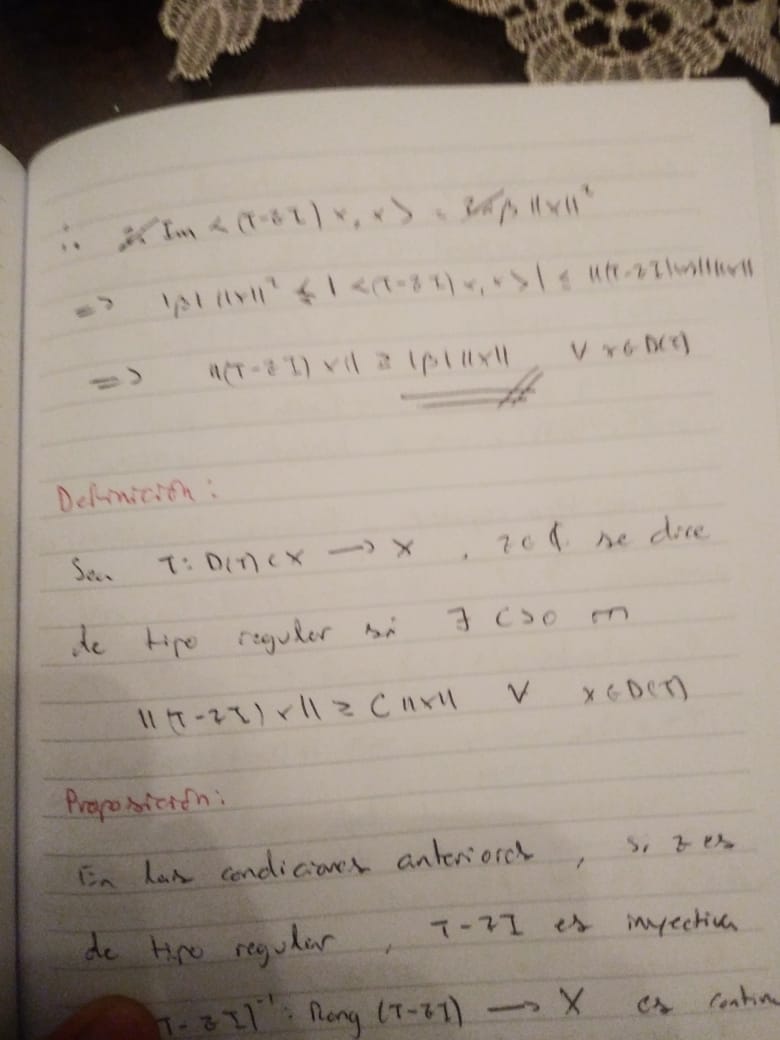 ∴ Im <(T-zI)x, x> = β ||x||²
=> |β| ||x||² ≤ |<(T-zI)x, x>| ≤ ||(T-zI)x|| ||x||
=> ||(T-zI)x|| ≥ |β| ||x|| ∀ x∈D(T)
Definición:
Sea T: D(T) ⊂ X → X , z∈ℂ se dice
de tipo regular si ∃ C>0 m
||(T-zI)x|| ≥ C||x|| ∀ x∈D(T)
Proposición:
En las condiciones anteriores, si z es
de tipo regular, T-zI es inyectiva
T-zI)⁻¹: Rang (T-zI) → X es continu